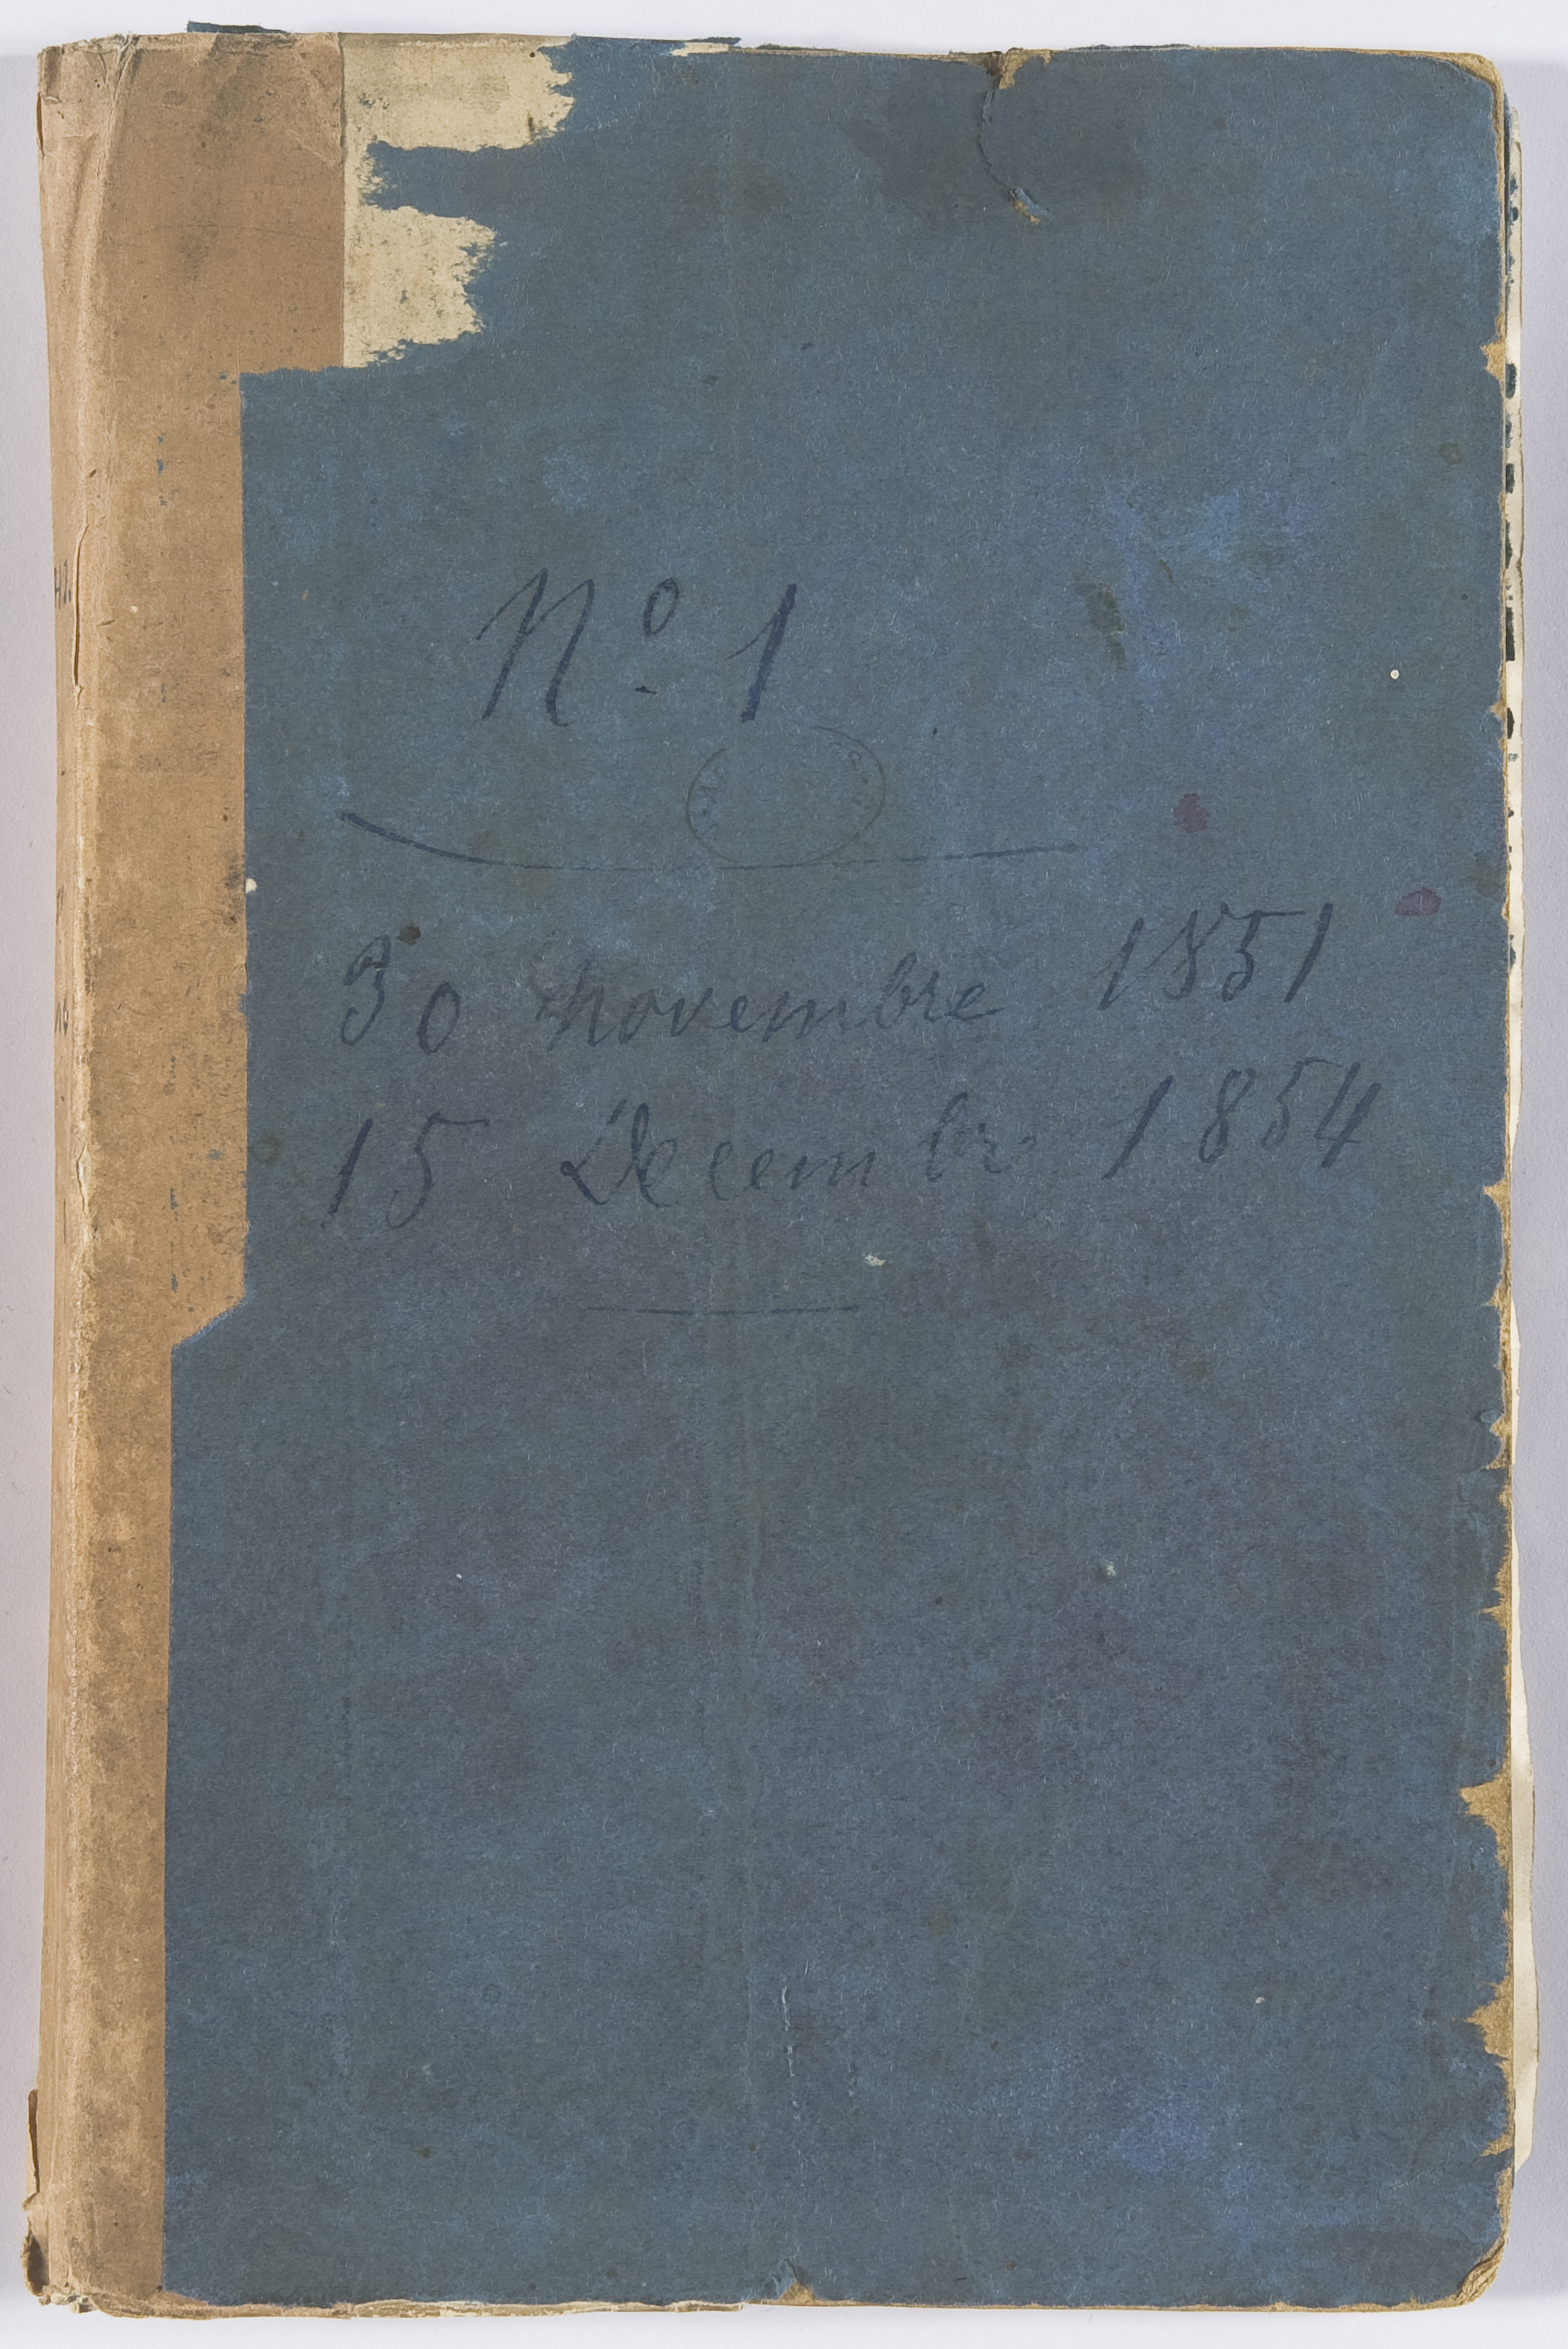 N° 1
30 novembre 1851
15 Decembre 1854